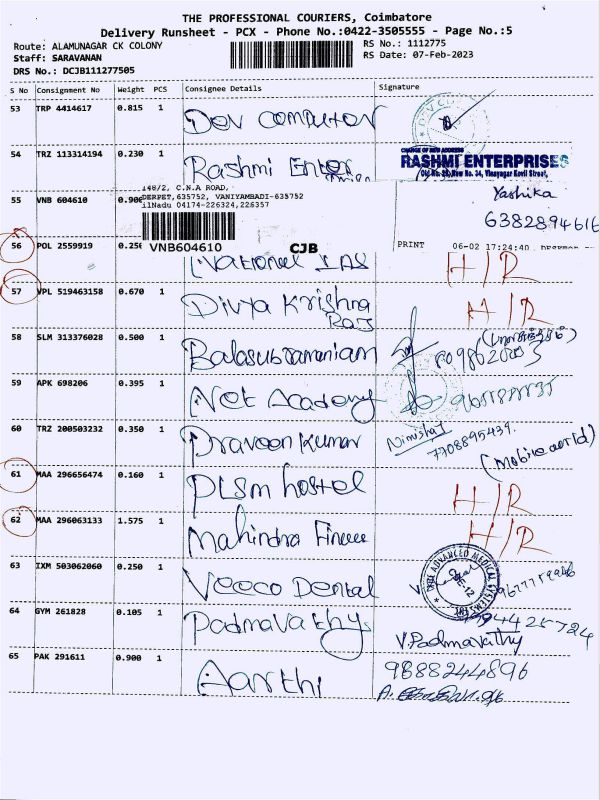 THE PROFESSIONAL COURIERS, Coimbatore
Delivery Runsheet - PCX - Phone No.:0422-3505555 - Page No.:5
Route: ALAMUNAGAR CK COLONY
RS No.: 1112775
Staff: SARAVANAN
RS Date: 07-Feb-2023
DRS No.: DCJB111277505
S No Consignment No Weight PCS Consignee Details Signature
53 TRP 4414617 0.815 1 Dev Computer
54 TRZ 113314194 0.230 1 Rashmi Enter
CHANGE OF NEW ADDRESS
RASHMI ENTERPRISES
Old No. 28, New No. 34, Vinayagar Kovil Street,
148/2, C.N.A ROAD,
55 VNB 604610 0.900
DERPET,635752, VANIYAMBADI-635752
ilNadu 04174-226324,226357
Yashika
6382894616
VNB604610 CJB
PRINT 06-02 17:24:40
56 POL 2559919 0.250 National IAS H/R
57 VPL 519463158 0.670 1 Divya Krishna Raj H/R
58 SLM 313376028 0.500 1 Balasubramaniam
59 APK 698206 0.395 1 Net Academy
60 TRZ 200503232 0.350 1 Praveen Kumar
Nimisha I
7708895439.
(Mobile world)
61 MAA 296656474 0.160 1 PLSM hostel H/R
62 MAA 296063133 1.575 1 Mahindra Finance H/R
63 IXM 503062060 0.250 1 Veeco Dental
ADVANCED MEDICAL SYSTEMS
CBE-12
64 GYM 261828 0.105 1 Padmavathy
V.Padmavathy
65 PAK 291611 0.900 1 Aarthi
9688244896